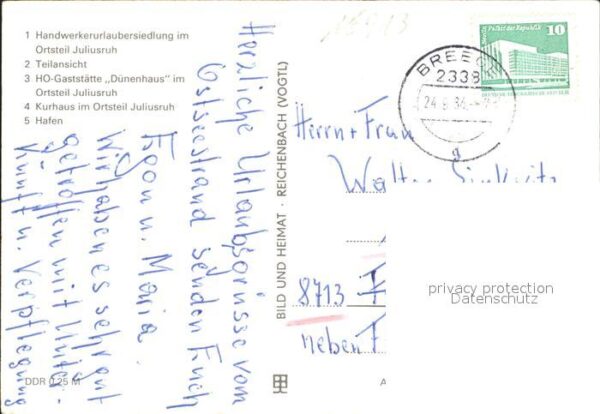 1 Handwerkerurlaubersiedlung im
Ortsteil Juliusruh
2 Teilansicht
3 HO-Gaststätte „Dünenhaus" im
Ortsteil Juliusruh
4 Kurhaus im Ortsteil Juliusruh
5 Hafen
Herzliche Urlaubsgrüsse vom
Ostseestrand senden Euch
Egon u. Maria.
Wir haben es sehr gut
getroffen mit Unter-
kunft u. Verpflegung
DDR 0,25 M
BILD UND HEIMAT · REICHENBACH (VOGTL)
Palast der Republik
10
BREEGE
2338
24.8.84
g
Herrn + Frau
Walter
8713
neben
privacy protection
Datenschutz
A